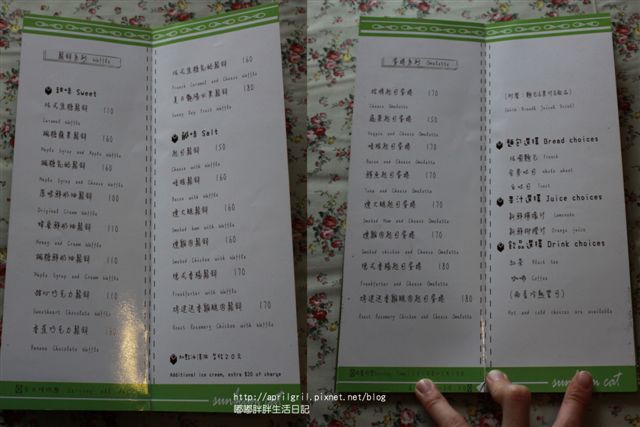 鬆餅系列 Waffle
甜味 Sweet
法式焦糖鬆餅 110
Caramel Waffle
楓糖蘋果鬆餅 160
Maple Syrup and Apple Waffle
楓糖乳酪鬆餅 160
Maple Syrup and Cheese Waffle
原味鮮奶油鬆餅 100
Original Cream Waffle
蜂蜜鮮奶油鬆餅 110
Honey and Cream Waffle
楓糖鮮奶油鬆餅 110
Maple Syrup and Cream Waffle
甜心巧克力鬆餅 110
Sweetheart Chocolate Waffle
香蕉巧克力鬆餅
Banana Chocolate Waffle
法式焦糖乳酪鬆餅 160
French Caramel and Cheese Waffle
夏日艷陽水果鬆餅 180
Sunny Day Fruit Waffle
鹹味 Salt
起司鬆餅 150
Cheese with Waffle
培根鬆餅 160
Bacon with Waffle
燻火腿鬆餅 160
Smoked ham with Waffle
燻雞鬆餅 160
Smoked Chicken with Waffle
德式香腸鬆餅 170
Frankfurter with Waffle
烤迷迭香雞腿肉鬆餅 170
Roast Rosemary Chicken with Waffle
Additional ice cream, extra $20 of charge
蛋捲系列 Omelette
起司蛋捲 170
Cheese Omelette
150
Veggie and Cheese Omelette
培根起司蛋捲 170
Bacon and Cheese Omelette
鮪魚起司蛋捲 170
Tuna and Cheese Omelette
燻火腿起司蛋捲 170
Smoked Ham and Cheese Omelette
燻雞肉起司蛋捲 170
Smoked chicken and Cheese Omelette
德式香腸起司蛋捲 170
Frankfurter and Cheese Omelette
烤迷迭香雞腿肉起司蛋捲 180
Roast Rosemary Chicken and Cheese Omelette
(附麵包&果汁&飲品)
(With Bread& Juice& Drink)
麵包選擇 Bread choices
法國麵包 French
全麥吐司 whole wheat
白吐司 Toast
果汁選擇 Juice choices
新鮮檸檬汁 Lemonade
新鮮柳橙汁 Orange juice
飲品選擇 Drink choices
紅茶 Black tea
咖啡 Coffee
(兩者冷熱皆可)
Hot and cold choices are available
http://aprilgril.pixnet.net/blog
嘟嘟胖胖生活日記